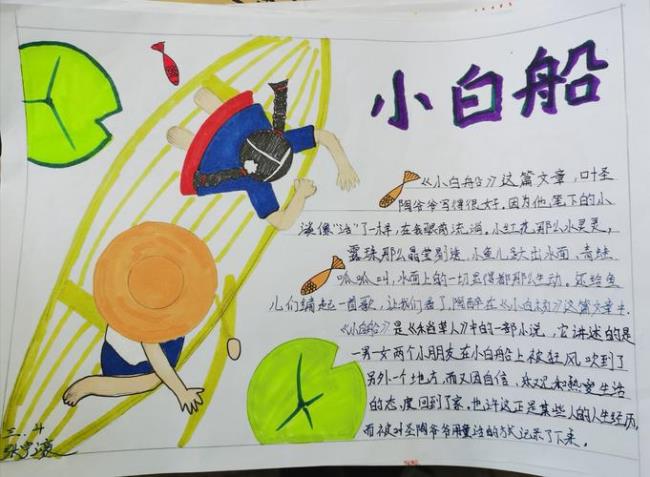 小白船
《小白船》这篇文章，叶圣
陶爷爷写得很好。因为他，笔下的小
溪像“活”了一样，在我眼前流淌。小红花那么水灵灵，
露珠那么晶莹剔透，小鱼儿钻出水面，青蛙
呱呱叫，水面上的一切显得都那么生动。还给鱼
儿们编起一首歌，让我们看了，陶醉在《小白船》这篇文章中。
《小白船》是《稻草人》中的一部小说，它讲述的是
一男一女两个小朋友在小白船上被狂风吹到了
另外一个地方，而又因自信、乐观和热爱生活
的态度回到了家。也许这正是某些人的人生经历，
而被叶圣陶爷爷用童话的方式记录了下来。
三.4
张